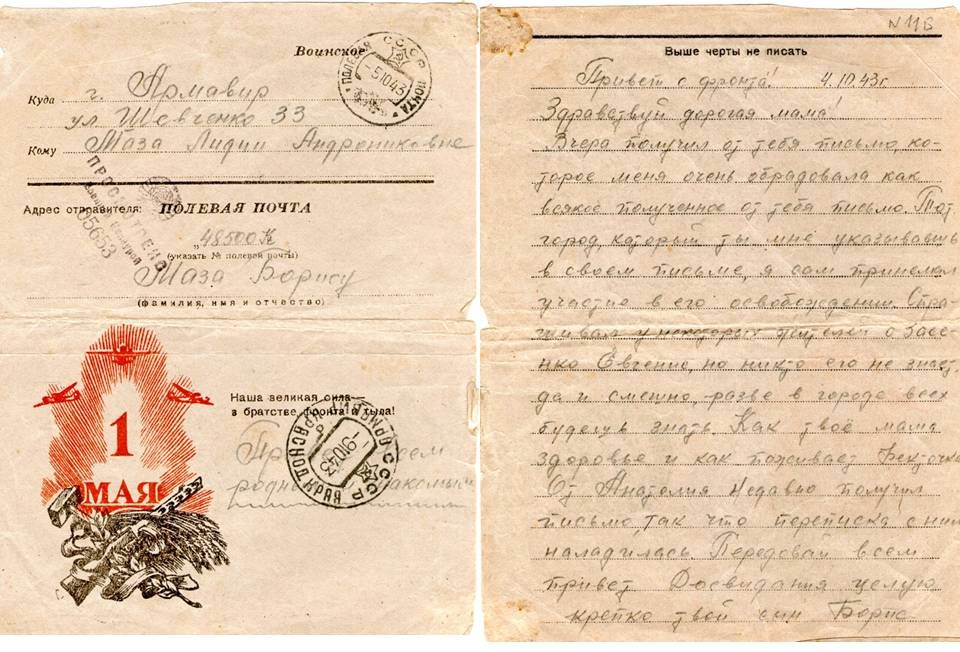 Воинское
ПОЛЕВАЯ ПОЧТА СССР
-5 10 43
Куда г. Армавир
ул. Шевченко 33
Кому Маза Лидии Андрониковне
ПРОСМОТРЕНО
05653
Адрес отправителя: ПОЛЕВАЯ ПОЧТА
„48500К
(указать № полевой почты)
Маза Борису
(фамилия, имя и отчество)
1
МАЯ
Наша великая сила—
в братстве фронта и тыла!
СССР
N 11В
Выше черты не писать
Привет с фронта! 4.10.43г.
Здравствуй дорогая мама!
Вчера получил от тебя письмо, ко-
торое меня очень обрадовала как
всякое полученное от тебя письмо. Тот
город, который ты мне указывавшь
в своем письме, я сам принемал
участие в его освобождении. Спра-
шивал у некоторых жителей о
Евгение, но никто его не знает,
да и смешно, разве в городе всех
будешь знать. Как твоё мама
здоровье и как поживает
От Анатолия недавно получил
письмо, так что переписка с ним
наладилась. Передовай всем
привет. Досвидания целую
крепко твой сын Борис